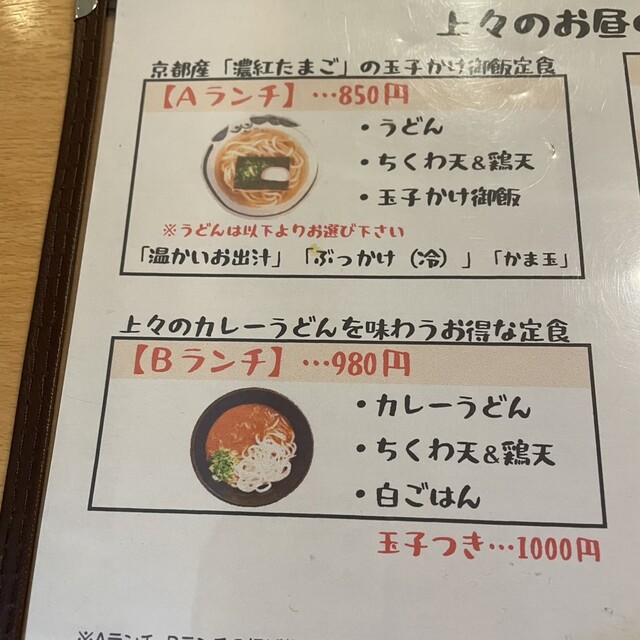 上々のお昼
京都産「濃紅たまご」の玉子かけ御飯定食
【Aランチ】…850円
・うどん
・ちくわ天&鶏天
・玉子かけ御飯
※うどんは以下よりお選び下さい
「温かいお出汁」「ぶっかけ(冷)」「かま玉」
上々のカレーうどんを味わうお得な定食
【Bランチ】…980円
・カレーうどん
・ちくわ天&鶏天
・白ごはん
玉子つき…1000円
※Aランチ、Bランチ